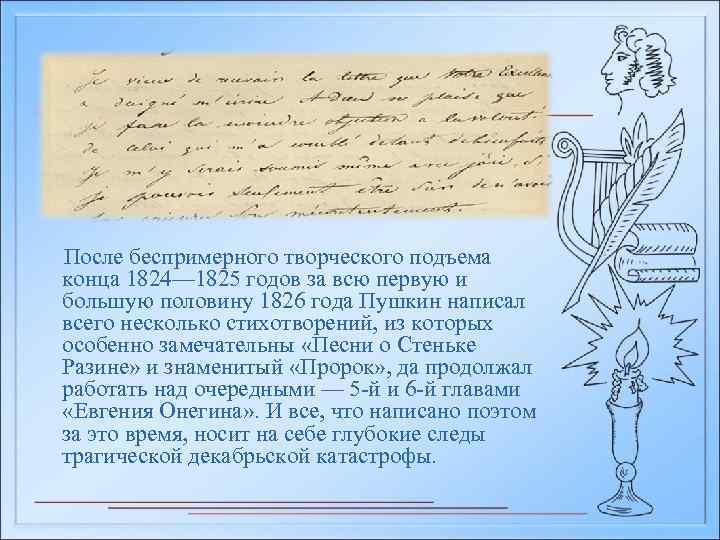 Je viens de recevoir la lettre que Votre Excellence
a daigné m'écrire. A Dieu ne plaise que
je fasse la moindre objection a la volonté
de celui qui m'a comblé de tant de bienfaits
Je m'y serais soumis même avec joie, si
je pouvais seulement être sûr de n'avoir
mécontentement.
После беспримерного творческого подъема
конца 1824—1825 годов за всю первую и
большую половину 1826 года Пушкин написал
всего несколько стихотворений, из которых
особенно замечательны «Песни о Стеньке
Разине» и знаменитый «Пророк», да продолжал
работать над очередными — 5-й и 6-й главами
«Евгения Онегина». И все, что написано поэтом
за это время, носит на себе глубокие следы
трагической декабрьской катастрофы.